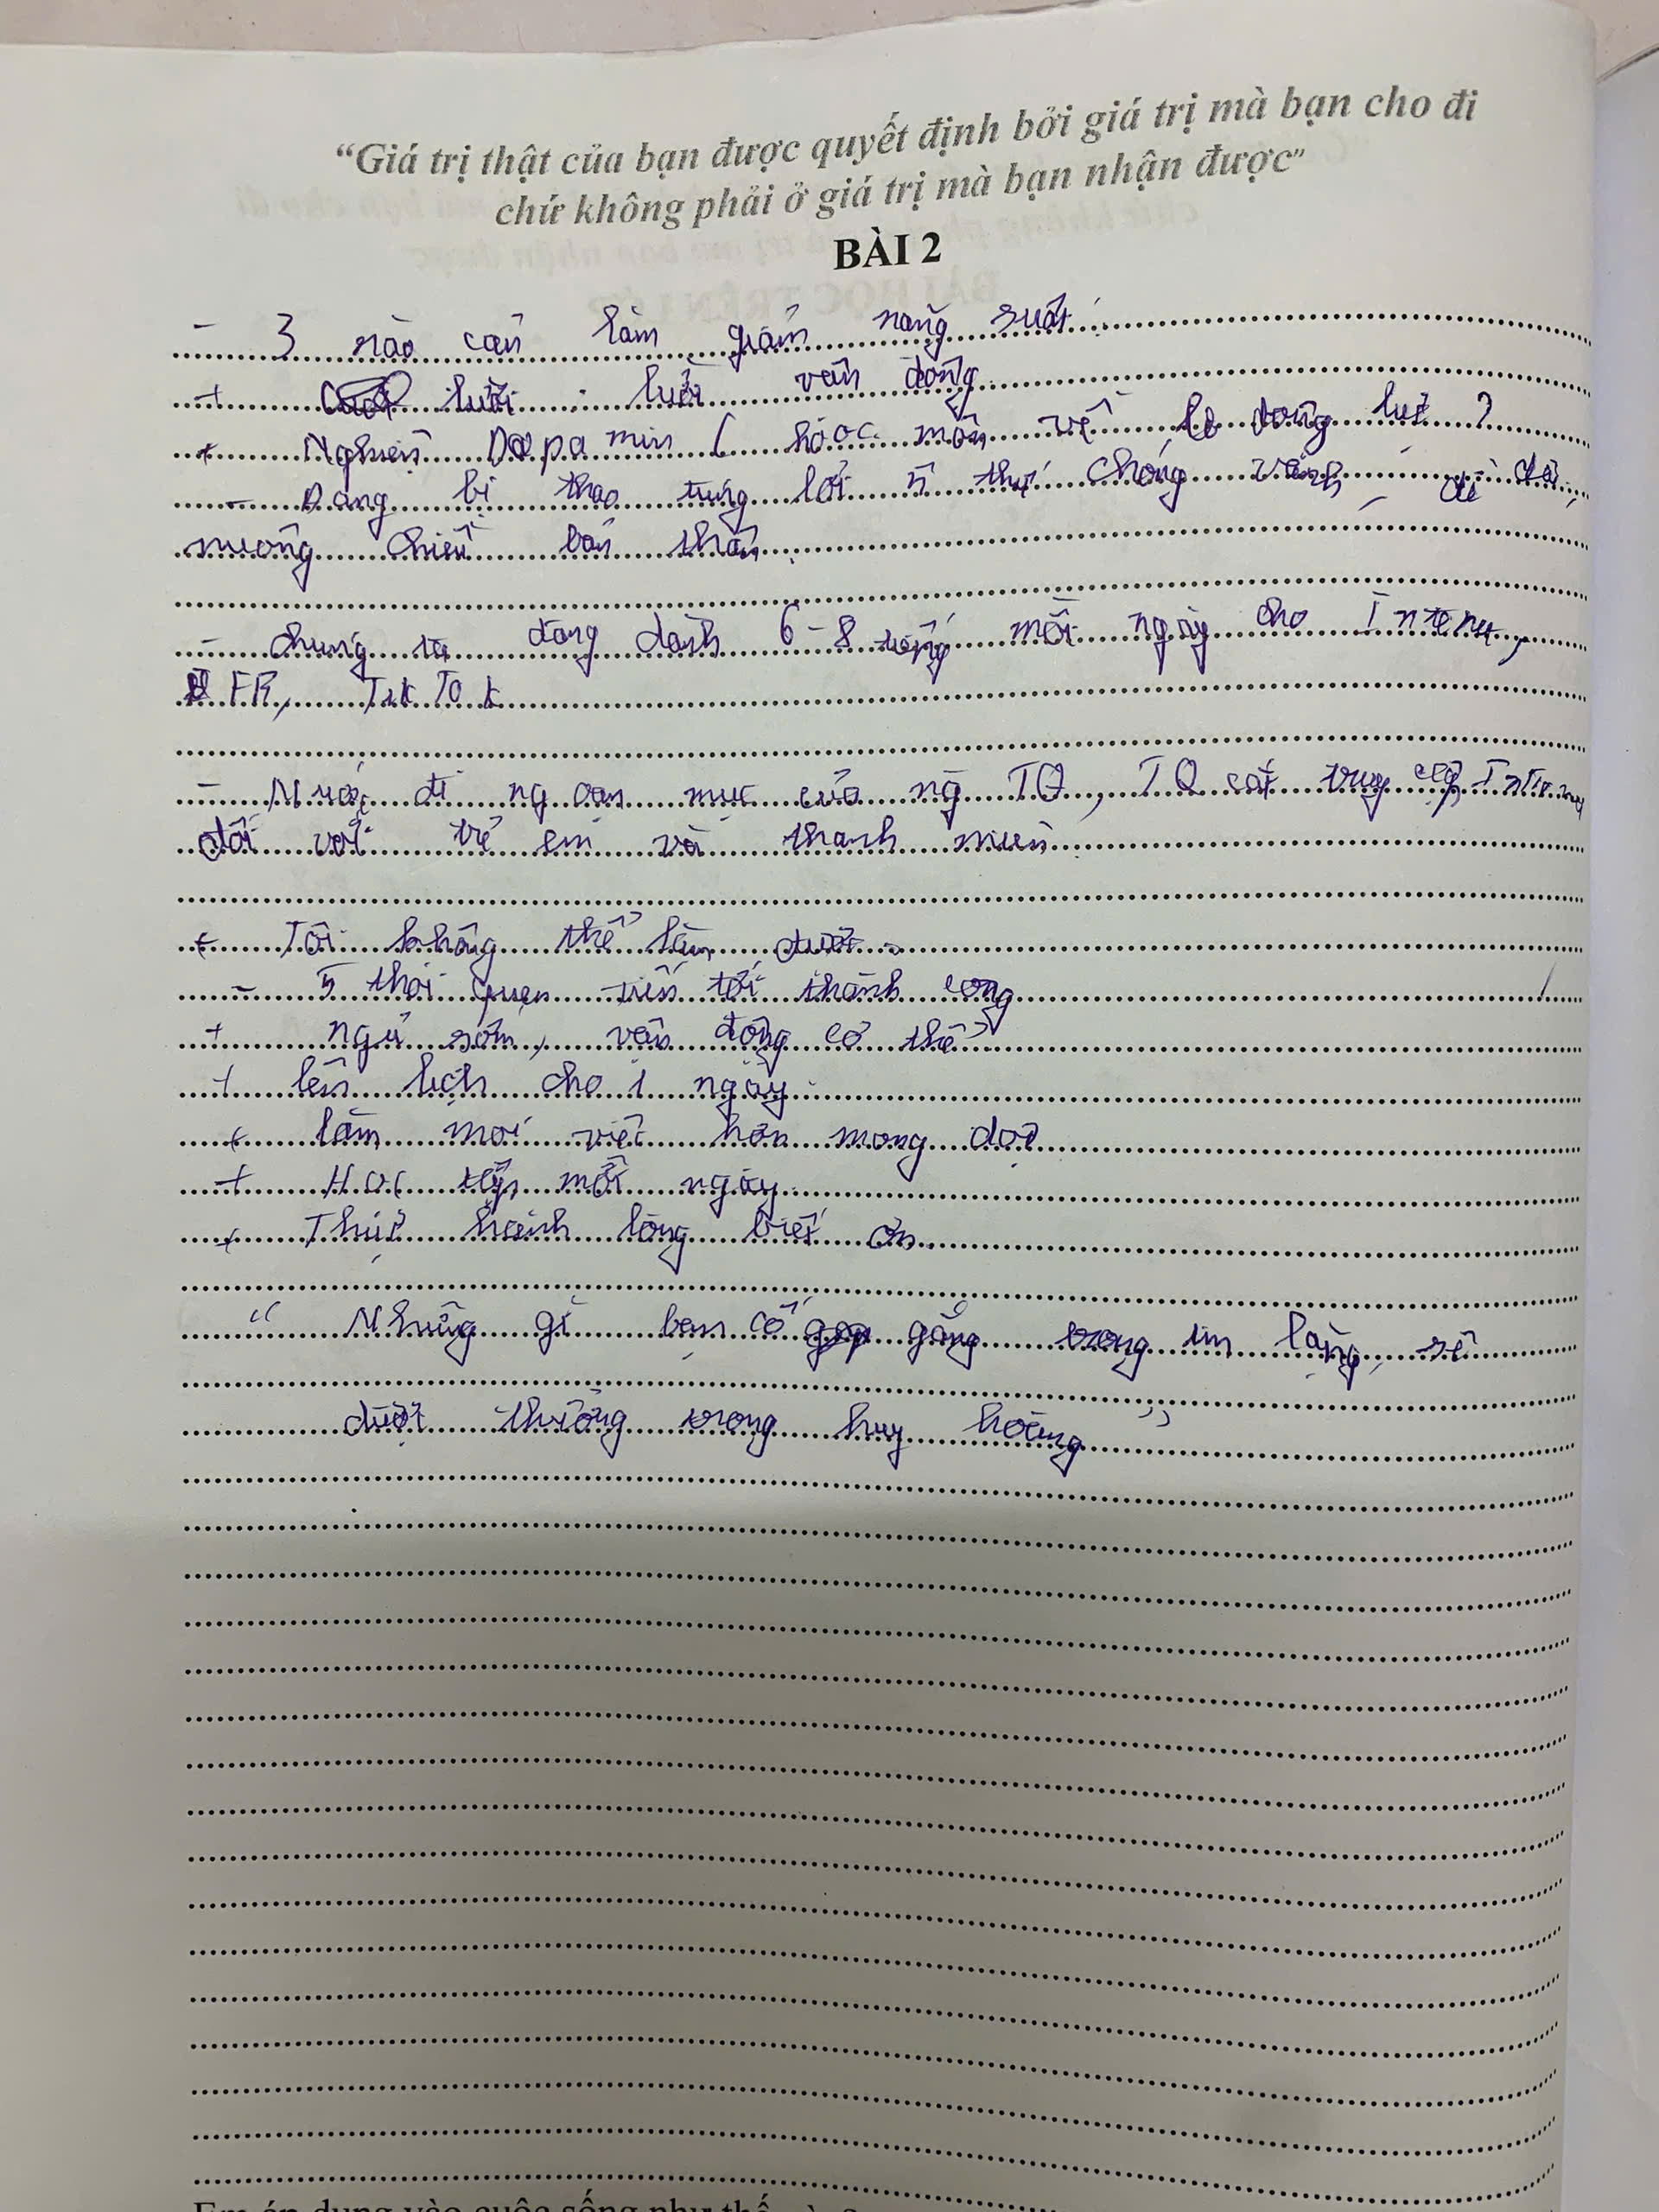 “Giá trị thật của bạn được quyết định bởi giá trị mà bạn cho đi
chứ không phải ở giá trị mà bạn nhận được”
BÀI 2
- 3 rào cản làm giảm năng suất :
+ lười : lười vận động
+ Nghiện Dopamin ( hooc môn về động lực )
- Đang bị thao túng bởi 5 thứ chóng vánh, dễ dãi,
nuông chiều bản thân.
- chúng ta đang dành 6-8 tiếng mỗi ngày cho Internet,
FB, TikTok
- Nước đi ngoạn mục của ng TQ, TQ cắt truy cập Internet
đối với trẻ em và thanh niên
+ Tôi không thể làm được.
- 5 thói quen tiến tới thành công
+ ngủ sớm, vận động cơ thể
+ lên lịch cho 1 ngày
+ làm mọi việc hơn mong đợi
+ Học tập mỗi ngày
+ Thực hành lòng biết ơn.
“ Những gì bạn cố gắng trong im lặng, sẽ
được thưởng trong huy hoàng ”
Em áp dụng vào cuộc sống như thế